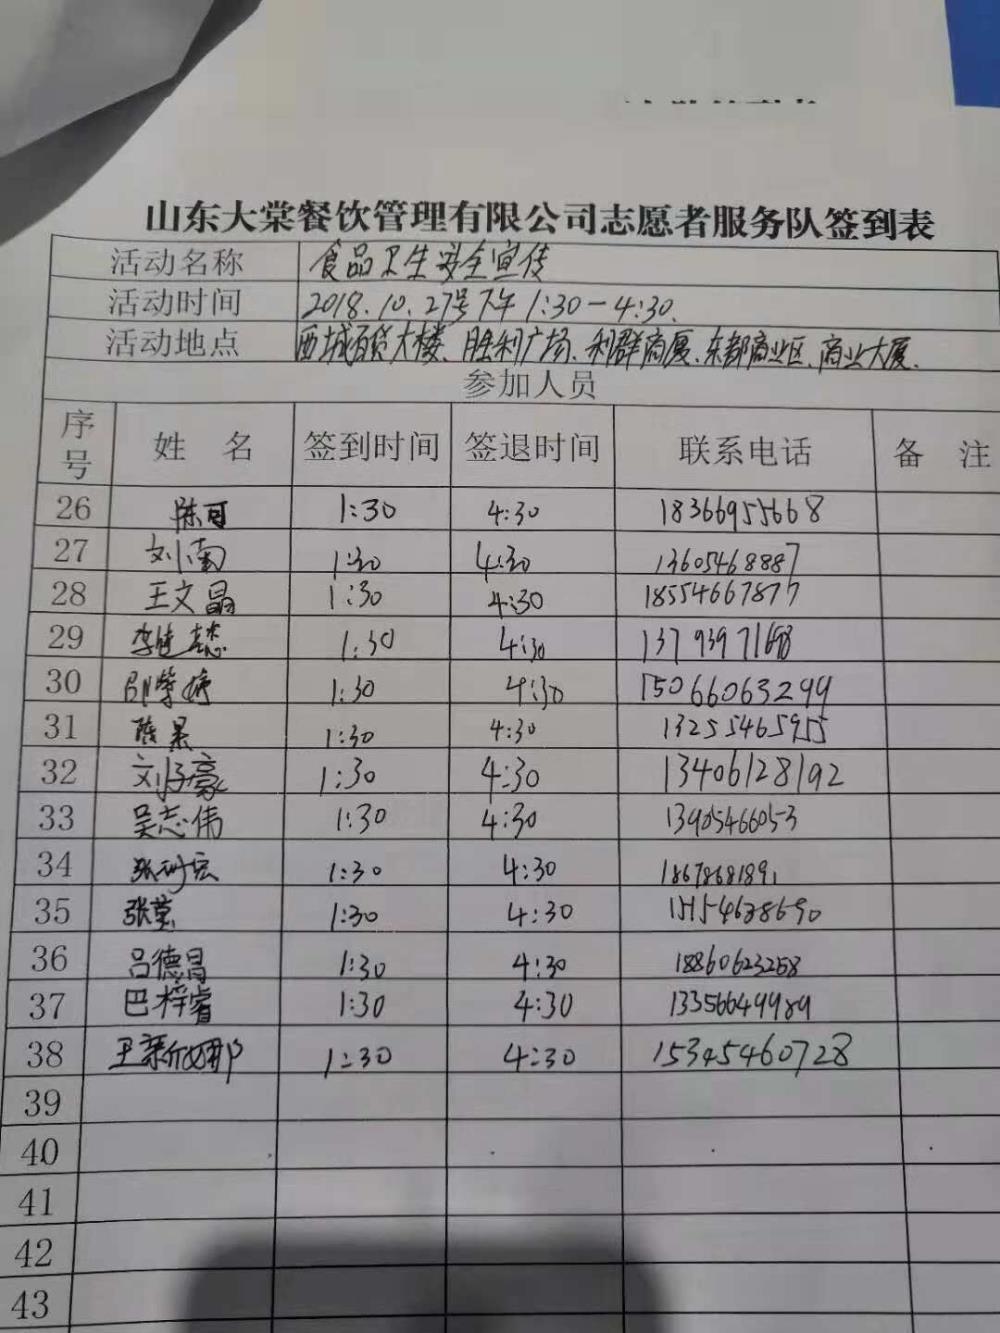 山东大棠餐饮管理有限公司志愿者服务队签到表
活动名称 食品卫生安全宣传
活动时间 2018.10.27号下午1:30-4:30.
活动地点 西城百货大楼、胜利广场、利群商厦、东都商业区、商业大厦.
参加人员
序号 姓 名 签到时间 签退时间 联系电话 备 注
26 陈可 1:30 4:30 18366955668
27 刘南 1:30 4:30 13605468887
28 王文晶 1:30 4:30 18554667877
29 李 1:30 4:30
30 1:30 4:30 15066063299
31 1:30 4:30 13255465955
32 刘子豪 1:30 4:30 13406128192
33 吴志伟 1:30 4:30 13905466053
34 1:30 4:30 18678681891
35 张 1:30 4:30
36 吕德昌 1:30 4:30 18860623258
37 巴梓睿 1:30 4:30 13356649989
38 1:30 4:30 15345460728
39
40
41
42
43